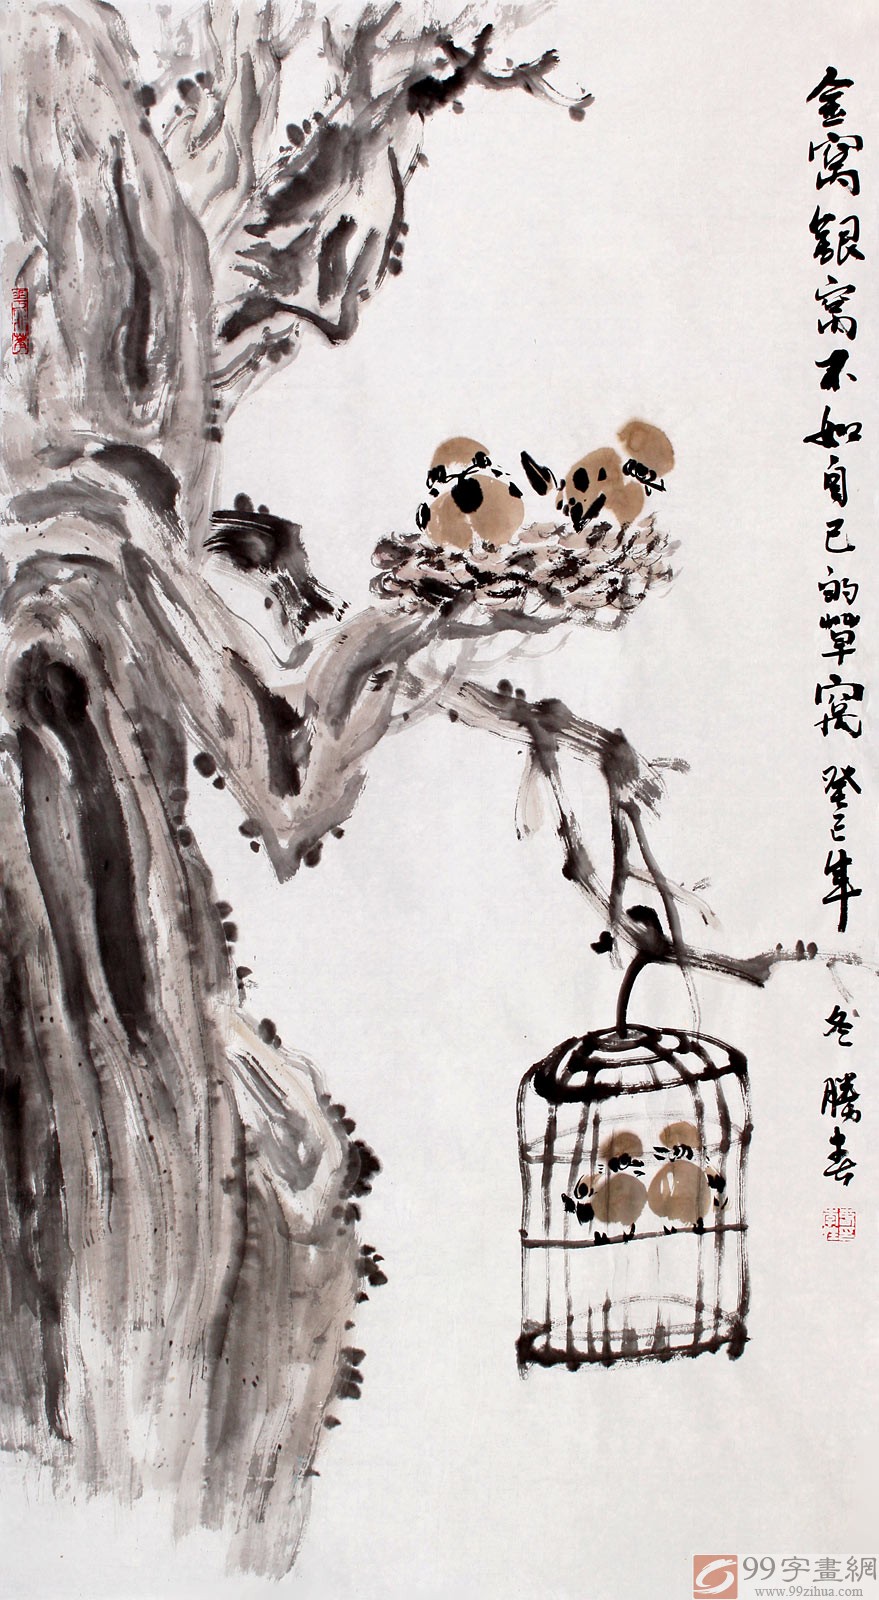 金窝银窝不如自己的草窝 癸巳年 冬 腾春
99字畫網
www.99zihua.com